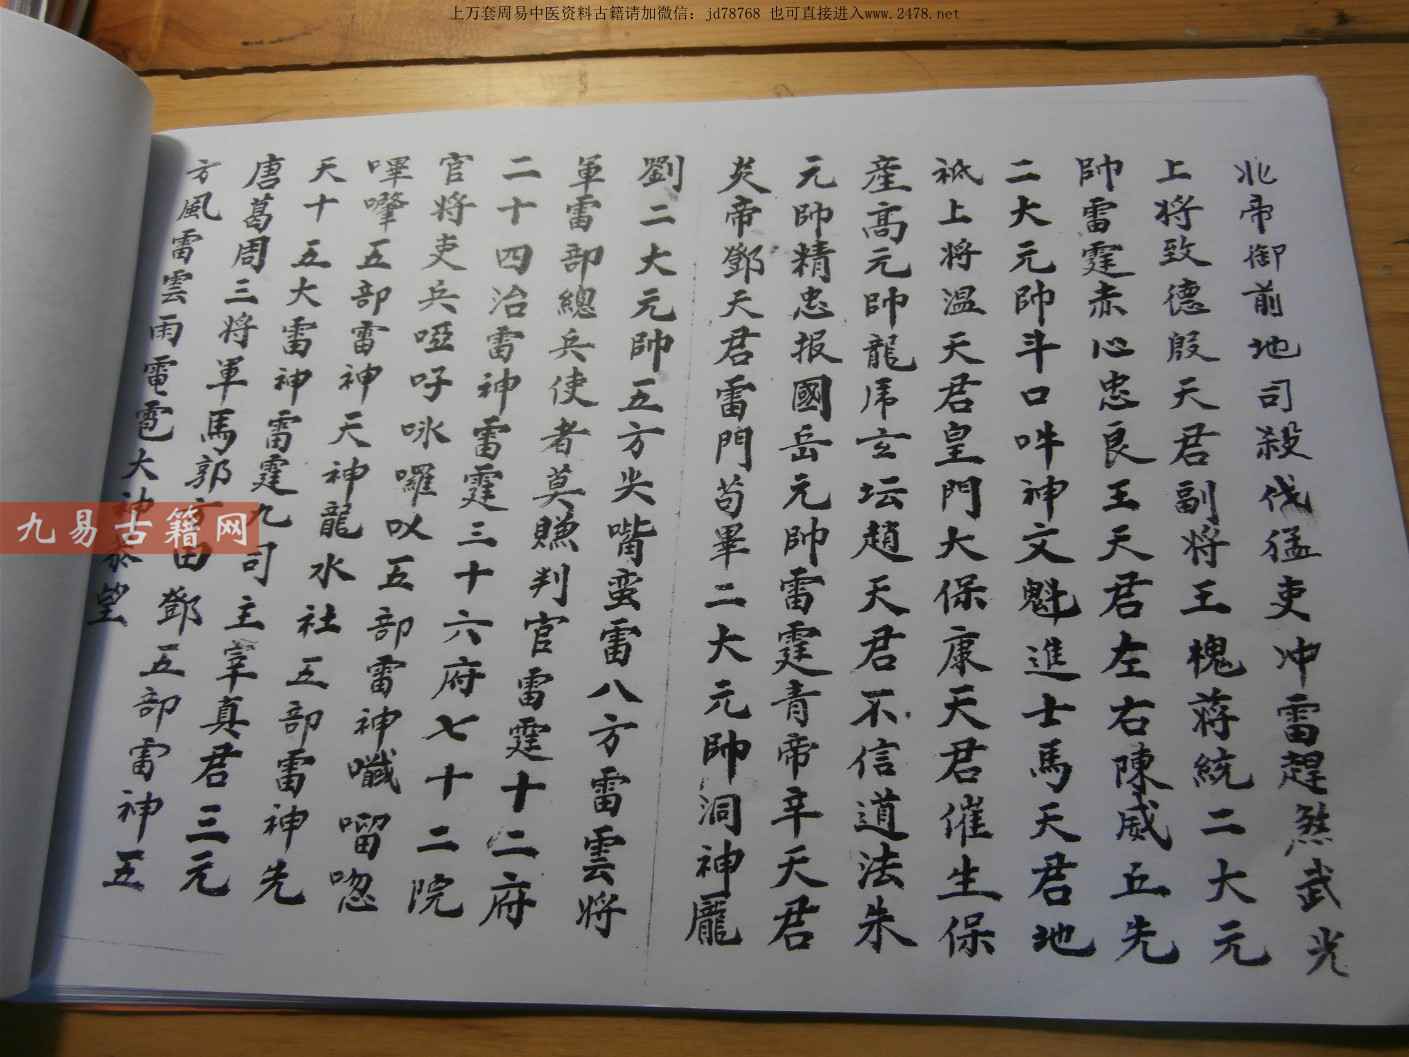 上万套周易中医资料古籍请加微信：jd78768 也可直接进入www.2478.net
北帝御前地司殺伐猛吏冲雷趕煞武光
上将致德殷天君副将王槐蒋統二大元
帥雷霆赤心忠良王天君左右陳威丘先
二大元帥斗口吽神文魁進士馬天君地
祗上将温天君皇門大保康天君催生保
産髙元帥龍虎玄坛趙天君不信道法朱
元帥精忠报國岳元帥雷霆青帝辛天君
炎帝鄧天君雷門苟畢二大元帥洞神龎
劉二大元帥五方尖嘴蛮雷八方雷雲将
軍雷部總兵使者莫賺判官雷霆十二府
二十四治雷神雷霆三十六府七十二院
官将吏兵啞吇咏囉以五部雷神囎㗉唿
嗶嚤五部雷神天神龍水社五部雷神先
天十五大雷神雷霆九司主宰真君三元
唐葛周三将軍馬郭方田鄧五部雷神五
方風雷雲雨電雹大神泰望
九易古籍网